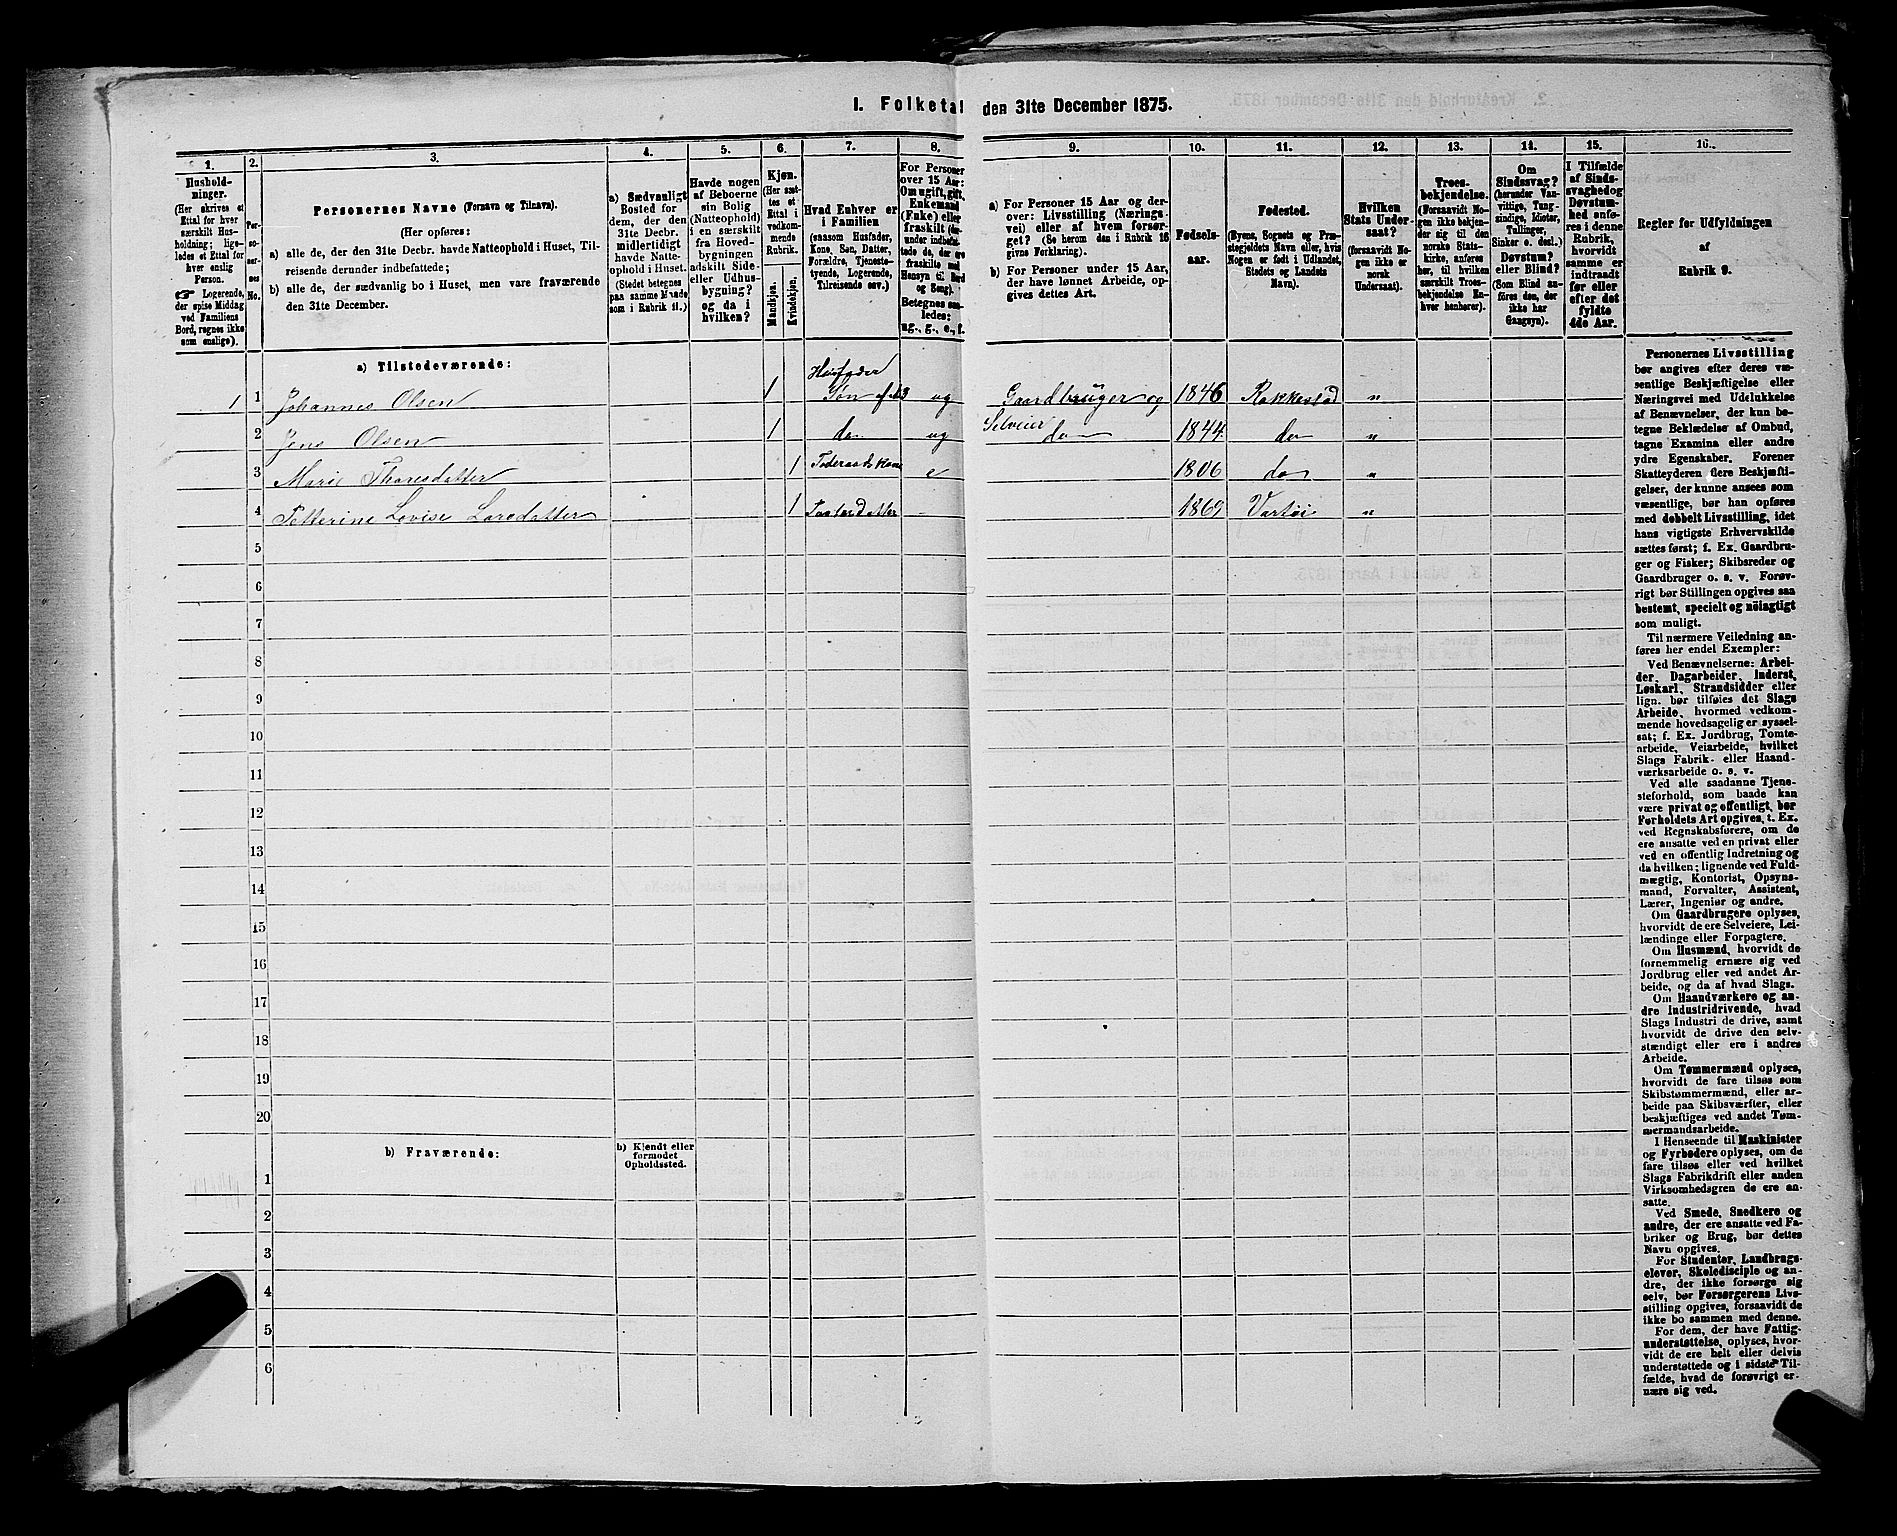 I. Folketal den 31te December 1875.
1.
Husholdninger.
(Her skrives et
Ettal for hver
særskilt Husholdning; ligeledes et Ettal for
hver enslig
Person.
☞ Logerende,
der spise Middag
ved Familiens
Bord, regnes ikke
som enslige).
2.
Personernes No.
3.
Personernes Navne (Fornavn og Tilnavn).
(Her opføres:
a) alle de, der den 31te Decbr. havde Natteophold i Huset, Tilreisende derunder indbefattede;
b) alle de, der sædvanlig bo i Huset, men vare fraværende
den 31te December.
4.
a) Sædvanligt
Bosted for
dem, der den
31te Decbr.
midlertidigt
havde Natteophold i Huset.
(Stedet betegnes
paa samme Maade
som i Rubrik 11.)
5.
Havde nogen
af Beboerne
sin Bolig
(Natteophold)
i en særskilt
fra Hovedbygningen
adskilt Side-
eller Udhusbygning?
og da i
hvilken?
6.
Kjøn.
(Her sættes et
Ettal i
vedkommende
Rubrik.
Mandkjøn.
Kvindekjøn.
7.
Hvad Enhver er
i Familien
(saasom Husfader,
Kone, Søn, Datter,
Forældre, Tjenestetyende, Logerende,
Tilreisende osv.)
8.
For Personer
over 15 Aar:
Om ugift, gift,
Enkemand
(Enke) eller
fraskilt
Betegnes saaledes:
ug., g., e., f.
9.
a) For Personer 15 Aar og derover: Livsstilling (Næringsvei) eller af hvem forsørget? (Se herom den i Rubrik 16
givne Forklaring).
b) For Personer under 15 Aar,
der have lønnet Arbeide, opgives dettes Art.
10.
Fødselsaar.
11.
Fødested.
(Byens, Sognets og Præstegjeldets Navn eller, hvis
Nogen er født i Udlandet,
Stedets og Landets
Navn).
12.
Hvilken
Stats Undersaat?
(forsaavidt Nogen ikke er
norsk
Undersaat).
13.
Troesbekjendelse.
(Forsaavidt Nogen ikke bekjender sig til den
norske Statskirke, anføres
her, til hvilken
særskilt Troesbekjendelse Enhver henhører).
14.
Om
Sindssvag?
(herunder Vanvittige, Tungsindige, Idioter,
Tullinger,
Sinker o. desl.)
Døvstum?
eller Blind?
(Som Blind anføres den, der
ikke har
Gangsyn).
15.
I Tilfælde
af Sindssvaghed og
Døvstumhed anføres i denne
Rubrik,
hvorvidt
samme er
indtraadt
før eller
efter det
fyldte
4de Aar.
16.
Regler for Udfyldningen
af
Rubrik 9.
a) Tilstedeværende:
1 1 Johannes Olsen 1 Husfader Søn af No 3 ug Gaardbruger og Selveier 1846 Rakkestad "
2 Jens Olsen 1 do ug do 1844 do "
3 Marie Thoresdatter 1 Føderaadskone e 1806 do "
4 Petterine Lovise Larsdatter 1 - 1869 "
5
6
7
8
9
10
11
12
13
14
15
16
17
18
19
20
b) Fraværende:
b) Kjendt eller
formodet
Opholdssted.
1
2
3
4
5
6
Personernes Livsstilling
bør angives efter deres væsentlige Beskjæftigelse eller
Næringsvei med Udelukkelse
af Benævnelser, der kun betegne Beklædelse af Ombud,
tagne Examina eller andre
ydre Egenskaber. Forener
Skatteyderen flere Beskjæftigelser, der kunne ansees som
væsentlige, bør han opføres
med dobbelt Livsstilling, idet
hans vigtigste Erhvervskilde
sættes først; f. Ex. Gaardbruger og Fisker; Skibsreder og
Gaardbruger o. s. v. Forøvrigt bør Stillingen opgives saa
bestemt, specielt og nöiagtigt
som muligt.
Til nærmere Veiledning anføres her endel Exempler:
Ved Benævnelserne: Arbeider, Dagarbeider, Inderst,
Løskarl, Strandsidder eller
lign. bør tilføies det Slags
Arbeide, hvormed vedkommende hovedsagelig er sysselsat; f. Ex. Jordbrug, Tomtearbeide, Veiarbeide, hvilket
Slags Fabrik- eller Haandværksarbeide o. s. v.
Ved alle saadanne Tjenesteforhold, som baade kan
være privat og offentligt, bør
Forholdets Art opgives, t. Ex.
ved Regnskabsførere, om de
ere ansatte ved en privat eller
ved en offentlig Indretning og
da hvilken; lignende ved Fuldmægtig, Kontorist, Opsynsmand, Forvalter, Assistent,
Lærer, Ingeniør og andre.
Om Gaardbrugere oplyses,
hvorvidt de ere Selveiere, Leilændinge eller Forpagtere.
Om Husmænd, hvorvidt de
fornemmelig ernære sig ved
Jordbrug eller ved andet Arbeide, og da af hvad Slags.
Om Haandværkere og andre Industridrivende, hvad
Slags Industri de drive, samt
hvorvidt de drive den selvstændigt eller ere i andres
Arbeide.
Om Tømmermænd oplyses,
hvorvidt de fare tilsøs som
Skibstømmermænd, eller arbeide paa Skibsværfter, eller
beskjæftiges ved andet Tømmermandsarbeide.
I Henseende til Maskinister
og Fyrbødere oplyses, om de
fare tilsøs eller ved hvilket
Slags Fabrikdrift eller anden
Virksomhedsgren de ere ansatte.
Ved Smede, Snedkere og
andre, der ere ansatte ved Fabriker og Brug, bør dettes
Navn opgives.
For Studenter, Landbrugselever, Skoledisciple og andre, der ikke forsørge sig
selv, bør Forsørgerens Livsstilling opgives, forsaavidt de
ikke bo sammen med denne.
For dem, der have Fattigunderstøttelse, oplyses, hvorvidt de ere helt eller delvis
understøttede og i sidste Tilfælde, hvad de forøvrigt ernære sig ved.